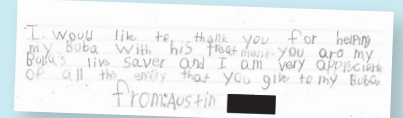 I would like to thank you for helping
my Buba with his treatment. you are my
Buba's live saver and I am very appreciate
of all the that you give to my Buba.
from: Austin